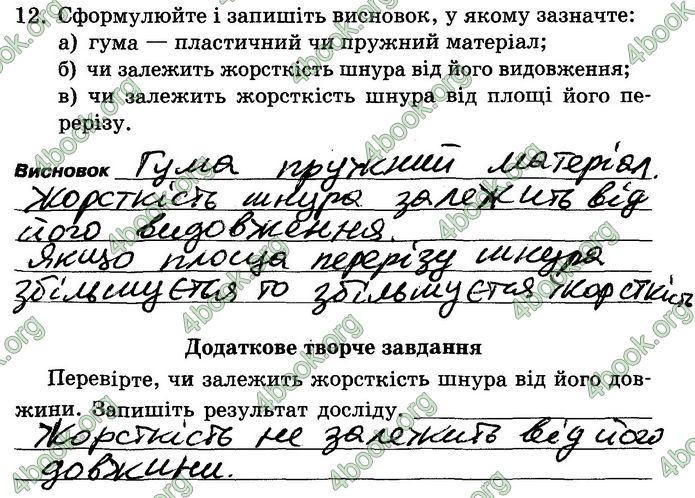 12. Сформулюйте і запишіть висновок, у якому зазначте:
а) гума — пластичний чи пружний матеріал;
б) чи залежить жорсткість шнура від його видовження;
в) чи залежить жорсткість шнура від площі його пе-
рерізу.
Висновок Гума пружний матеріал.
Жорсткість шнура залежить від
його видовження.
Якщо площа перерізу шнура
збільшується то збільшується жорсткість
Додаткове творче завдання
Перевірте, чи залежить жорсткість шнура від його дов-
жини. Запишіть результат досліду.
Жорсткість не залежить від його
довжини.
4book.org